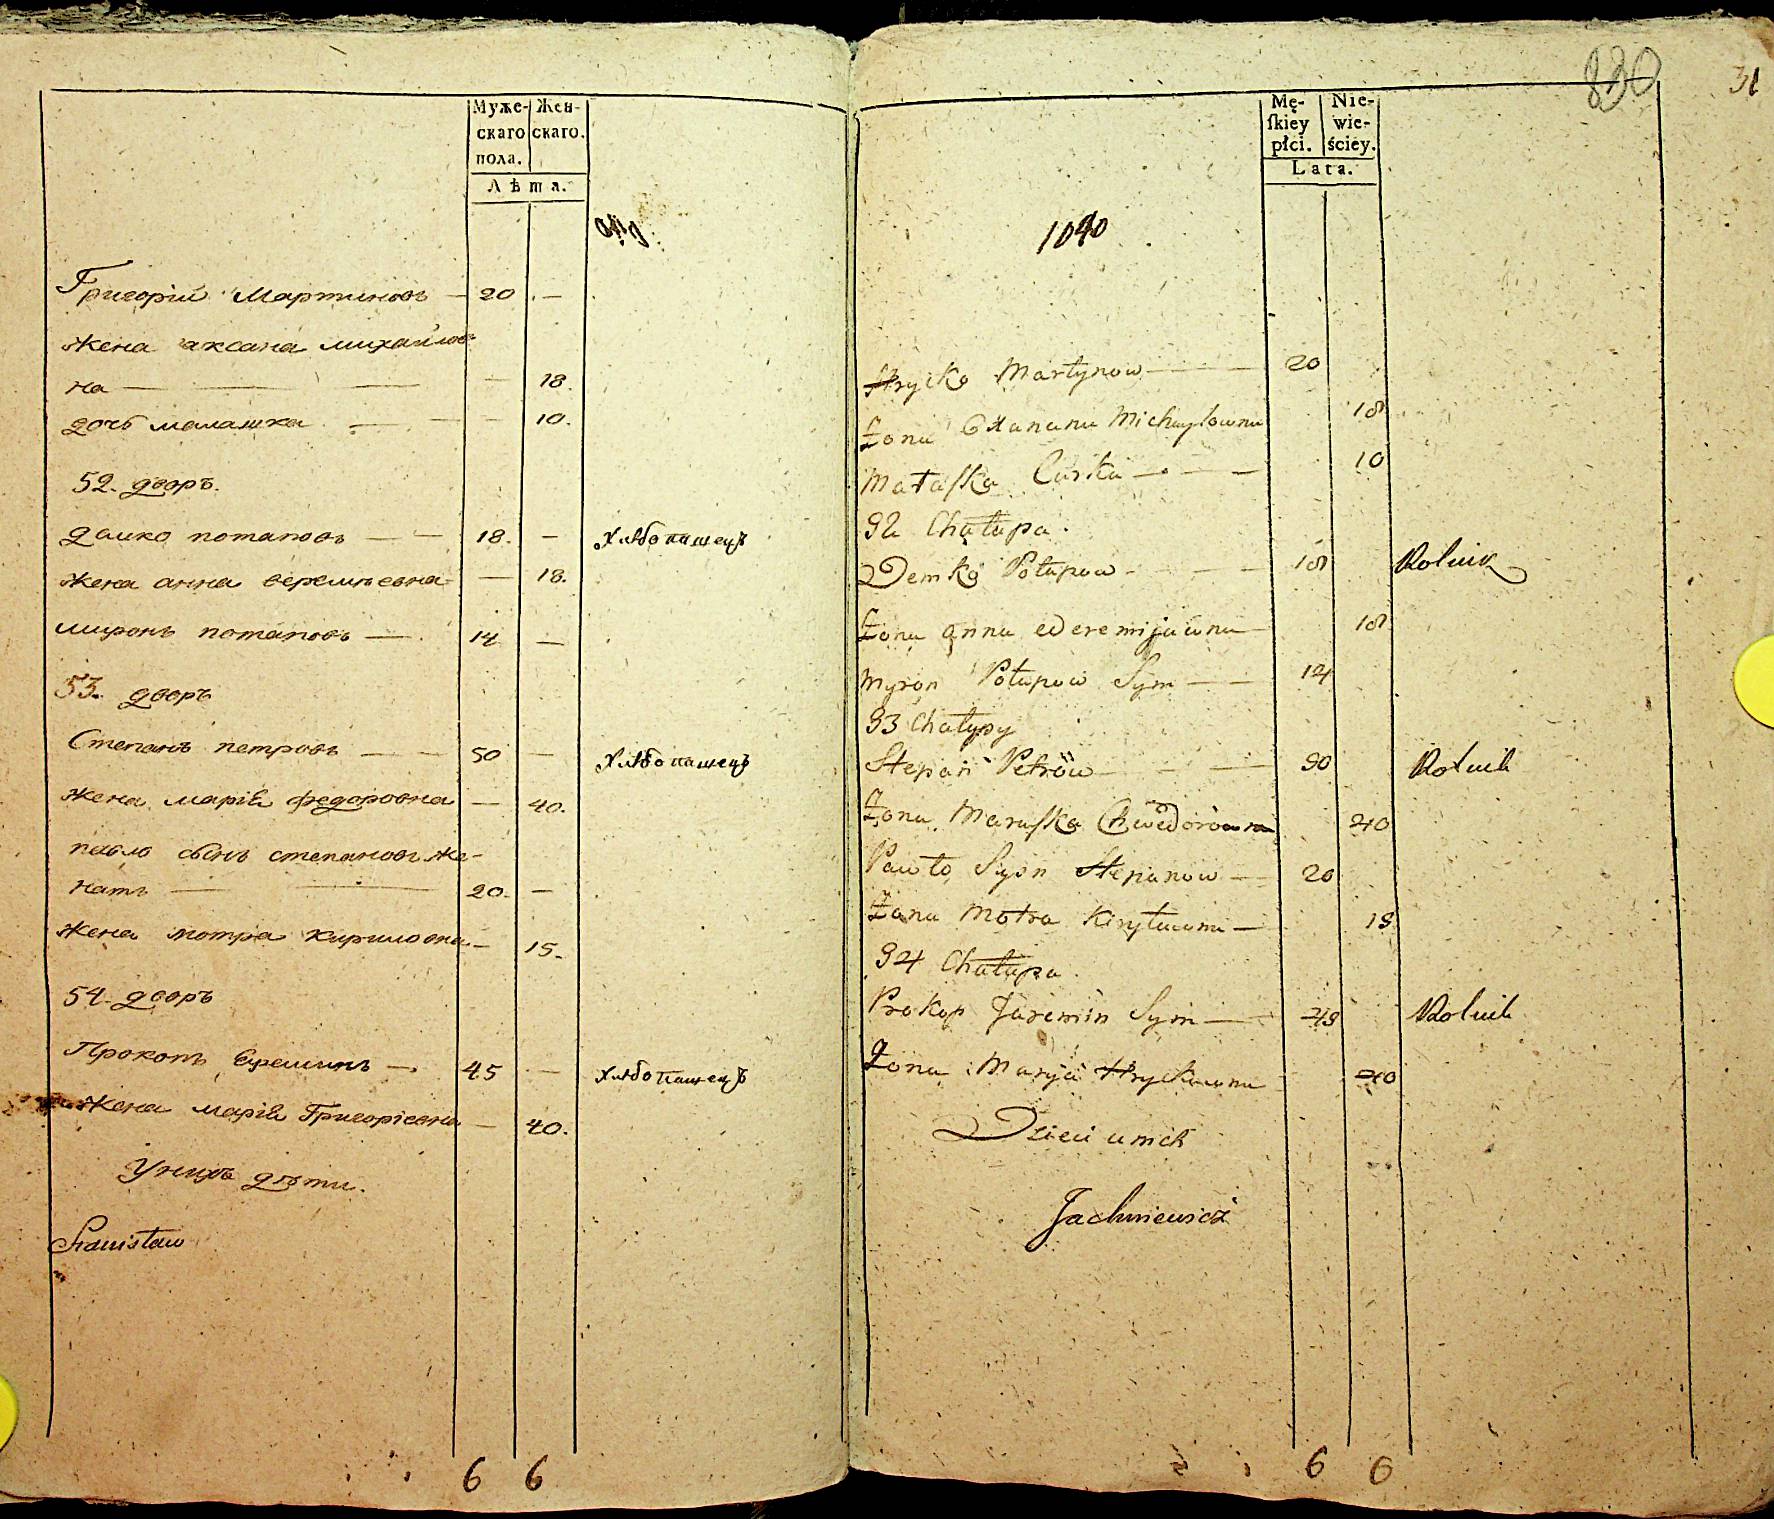 Муже- Жен-
скаго скаго.
пола.
Лѣта.
Григорій Мартиновъ — 20 —
жена аксана михайлов-
на — — — — 18.
дочь малашка — — — 10.
52. дворъ.
Дамко потаповъ — — 18. — хлѣбопашецъ
жена анна веремѣевна — — 18.
миронъ потаповъ — 14 —
53. дворъ
Степанъ петровъ — — 50 — хлѣбопашецъ
жена марія федоровна — 40.
павло сынъ степановъ же-
натъ — — 20. —
жена мотра кириловна — 15.
54. дворъ
Прокопъ Ереминъ — 45 — хлѣбопашецъ
жена марія Григоріевна — 40.
У нихъ дѣти.
Stanisław
6 6
830 31
Mę- Nie-
ſkiey wie-
płci. ściey.
Lata.
1040
Hrycko Martynow — 20
Żona Oxanana Michayłowna 18
Małaſka Curka — — 10
52 Chałupa.
Demko Potapow — — 18 Rolnik
Żona anna weremijawna — 18
Myron Potapow Syn — — 14
53 Chałupy
Stepan Petrów — — 50 Rolnik
Żona Maruſka Chwedorowna 40
Pawło Syn Stepanow — 20
Żona Motra Kiryławna — 15
54 Chałupa.
Prokop Jaremin Syn — 45 Rolnik
Żona Marya Hryckowna 40
Dzieci u nich
Jachniewicz
6 6